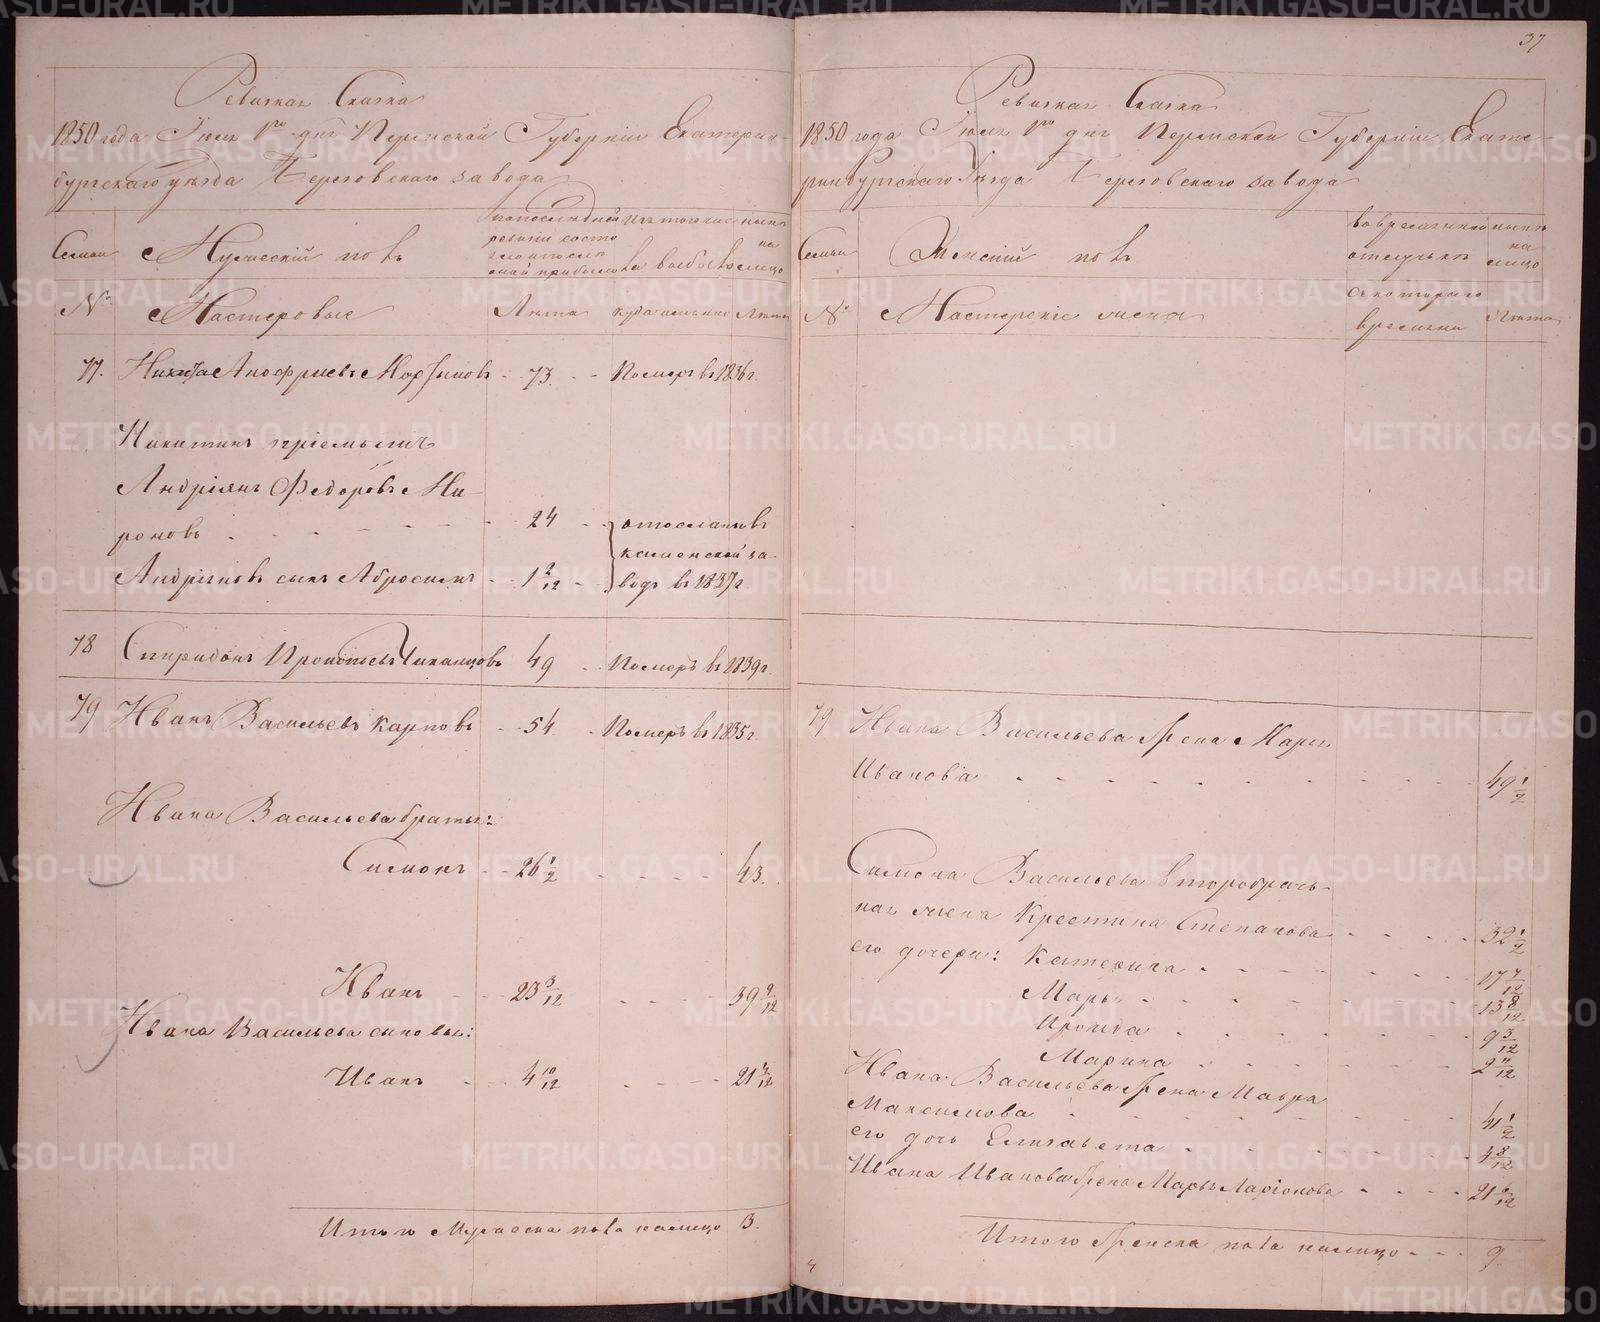 37
Ревизкая Сказка
1850 года Июля 1го дня Пермской Губерніи Екатерин-
бургскаго уѣзда Березовскаго завода
Семьи
Мужескій полъ
по последней
ревизіи состо
яло и после
оной прибыло
изъ того чис
ла выбыло
нынѣ
на
лицо
№
Мастеровые
Лѣта
куда именно
Лѣта
77.
Никита Анофриевъ Марзыновъ
73
Померъ въ 1836 г.
Никитинъ пріемышъ
Андріянъ Федоровъ Ми-
роновъ
24
отосланъ въ
каменской за-
Андріяновъ сынъ Абросимъ
1 2/12
водъ въ 1837 г
78
Спиридонъ Прокопьевъ
49
Померъ въ 1839 г.
79
Иванъ Васильевъ Карповъ
54
Померъ въ 1835 г.
Ивана Васильева братья:
Симонъ
26 1/2
43.
Иванъ
23 3/12
39 9/12
Ивана Васильева сыновья:
Иванъ
4 10/12
21 4/12
Итого Мужеска пола налицо
3.
Ревизкая Сказка
1850 года Июля 1го дня Пермской Губерніи Екате-
ринбургскаго Уѣзда Березовскаго завода
Семьи
Женскій полъ
во временной
отлучкѣ
нынѣ
на
лицо
№
Мастерскіе жена
с котораго
времени
Лѣта
79
Ивана Васильева жена Марья
Иванова
49 1/2
Симона Васильева второбрач-
ная жена Крестина Степанова
32 1/2
его дочери: Катерина
17 7/12
Марья
13 8/12
9 3/12
Марина
2 4/12
Ивана Васильева жена Мавра
Максимова
41 1/2
его дочь Елизавета
4 8/12
Ивана Иванова жена Марья Ларіонова
21 6/12
Итого Женска пола налицо
9.
METRIKI.GASO-URAL.RU